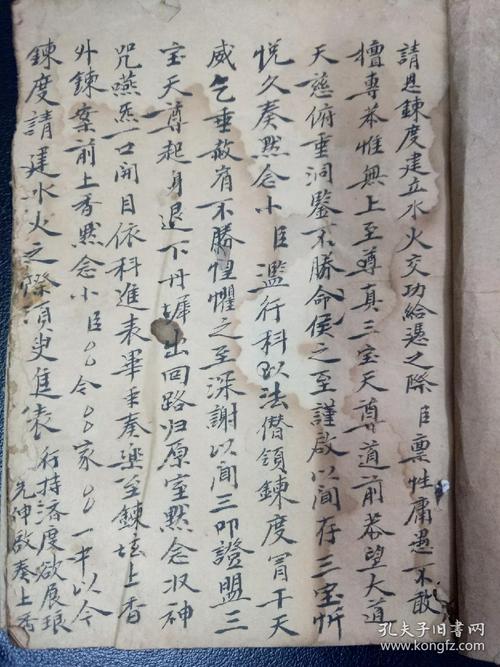 請恩鍊度建立水火交功給憑之際臣禀性庸愚不敢
擅專恭惟無上至尊真三宝天尊道前恭望大道
天慈俯垂洞鑒不勝命俟之至謹啟以闻存三宝忻
悦久奏黙念小臣濫行科以法僭領鍊度冐干天
威乞垂赦宥不勝惶懼之至深謝以闻三叩證盟三
宝天尊起身退下丹墀出回路归原室黙念收神
咒嚥炁一口開目依科進表畢奏樂至鍊坛上香
外鍊案前上香黙念小臣厶今厶家厶一中以今
鍊度請建水火之際須史進表行持済度欲展琅
先伸啟奏上香
孔夫子旧书网
www.kongfz.com